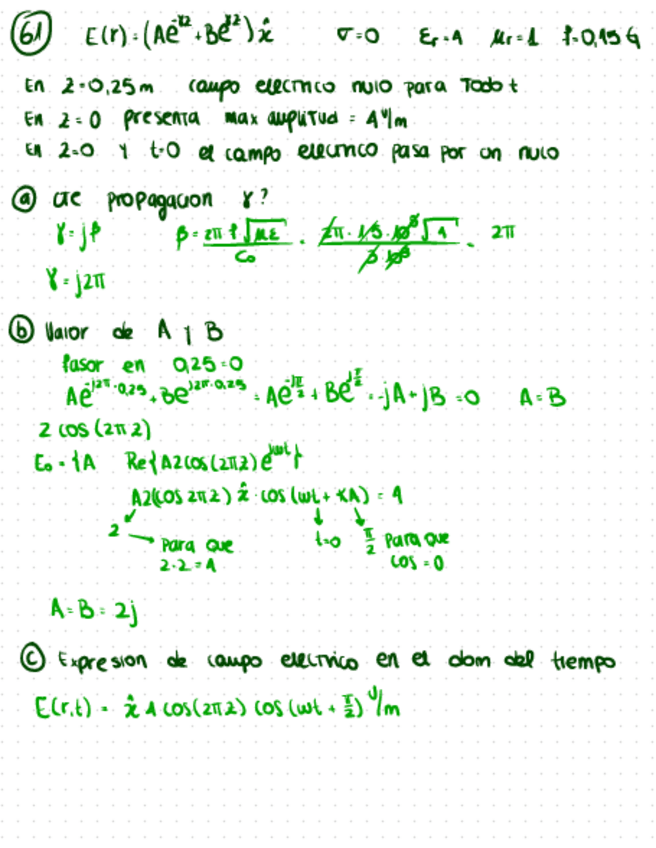 61 E(r) = (Ae^-γz + Be^γz) x̂ σ=0 εr=4 μr=1 f=0,15 G
En z=0,25m campo electrico nulo para Todo t
En z=0 presenta max amplitud = 4 V/m
En z=0 y t=0 el campo electrico pasa por un nulo
a) cte propagacion γ?
γ=jβ β = 2π f √με / c₀ = 2π · 1,5 · 10⁸ √4 / 3·10⁸ = 2π
γ=j2π
b) Valor de A y B
fasor en 0,25=0
Ae^-j2π·0,25 + Be^j2π·0,25 = Ae^-jπ/2 + Be^jπ/2 = -jA+jB=0 A=B
2 cos (2πz)
E₀ = {A Re{A2cos(2πz) e^jωt}
A2(cos 2πz) x̂ · cos (ωt + ∠A) = 4
2 → Para que 2·2=4 t=0 π/2 Para que cos=0
A=B=2j
c) Expresion de campo electrico en el dom del tiempo
E(r,t) = x̂ 4 cos(2πz) cos (ωt + π/2) V/m